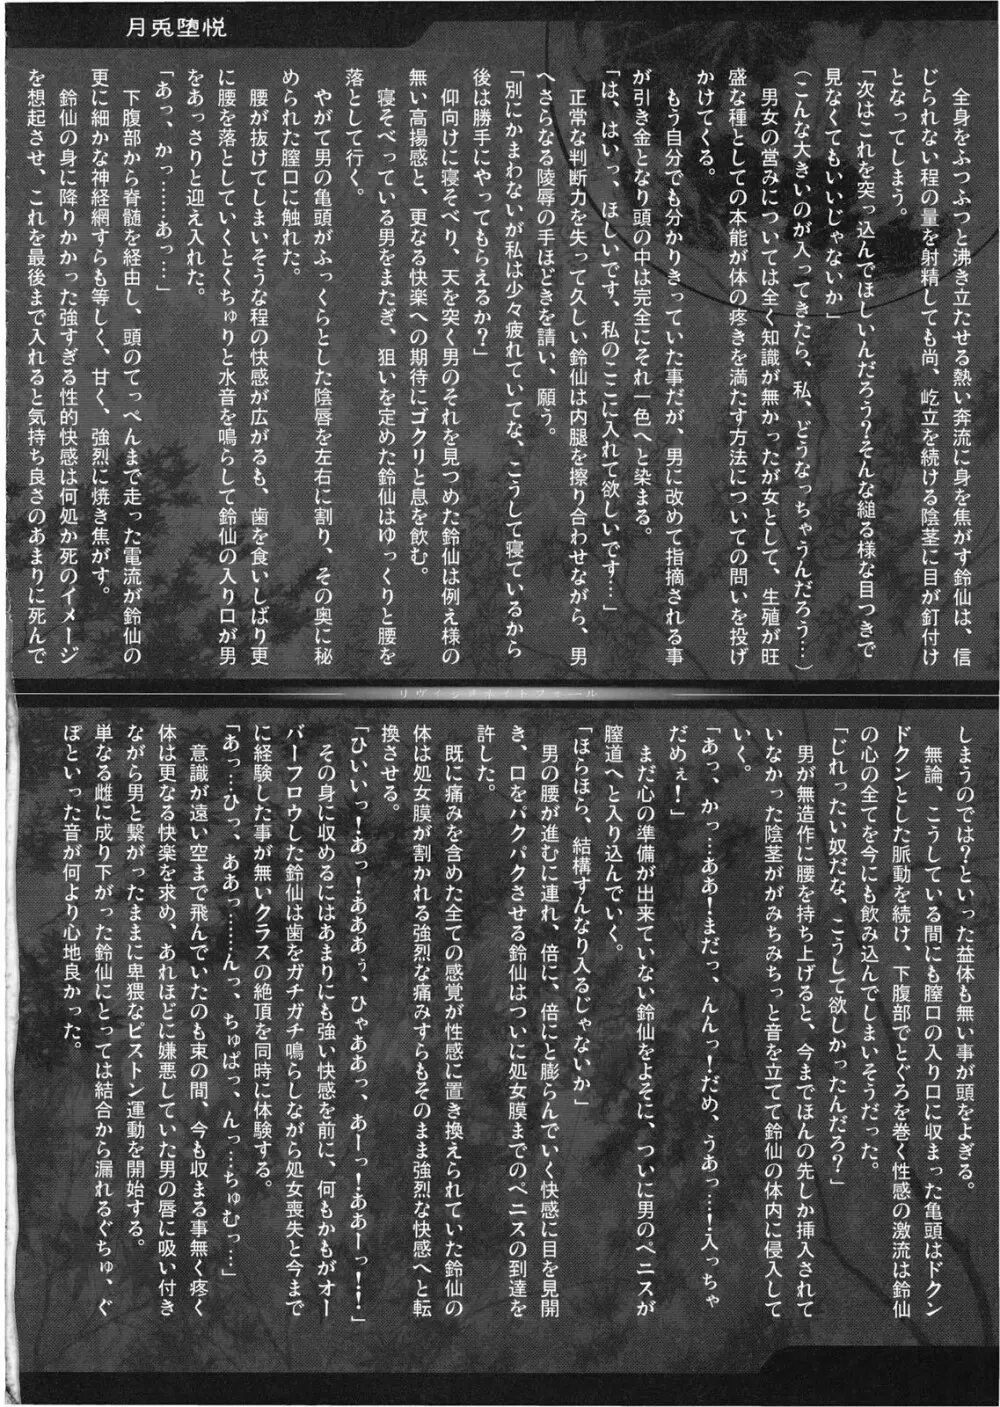 月兎堕悦
全身をふつふつと沸き立たせる熱い奔流に身を焦がす鈴仙は、信
じられない程の量を射精しても尚、屹立を続ける陰茎に目が釘付け
となってしまう。
「次はこれを突っ込んでほしいんだろう?そんな縋る様な目つきで
見なくてもいいじゃないか」
(こんな大きいのが入ってきたら、私、どうなっちゃうんだろう…)
男女の営みについては全く知識が無かったが女として、生殖が旺
盛な種としての本能が体の疼きを満たす方法についての問いを投げ
かけてくる。
もう自分でも分かりきっていた事だが、男に改めて指摘される事
が引き金となり頭の中は完全にそれ一色へと染まる。
「は、はいっ、ほしいです、私のここに入れて欲しいです…」
正常な判断力を失って久しい鈴仙は内腿を擦り合わせながら、男
へさらなる陵辱の手ほどきを請い、願う。
「別にかまわないが私は少々疲れていてな、こうして寝ているから
後は勝手にやってもらえるか?」
仰向けに寝そべり、天を突く男のそれを見つめた鈴仙は例え様の
無い高揚感と、更なる快楽への期待にゴクリと息を飲む。
寝そべっている男をまたぎ、狙いを定めた鈴仙はゆっくりと腰を
落として行く。
やがて男の亀頭がふっくらとした陰唇を左右に割り、その奥に秘
められた膣口に触れた。
腰が抜けてしまいそうな程の快感が広がるも、歯を食いしばり更
に腰を落としていくとくちゅりと水音を鳴らして鈴仙の入り口が男
をあっさりと迎え入れた。
「あっ、かっ………あっ…」
下腹部から脊髄を経由し、頭のてっぺんまで走った電流が鈴仙の
更に細かな神経網すらも等しく、甘く、強烈に焼き焦がす。
鈴仙の身に降りかかった強すぎる性的快感は何処か死のイメージ
を想起させ、これを最後まで入れると気持ち良さのあまりに死んで
リヴィジョネートフォール
しまうのでは?といった益体も無い事が頭をよぎる。
無論、こうしている間にも膣口の入り口に収まった亀頭はドクン
ドクンとした脈動を続け、下腹部でとぐろを巻く性感の激流は鈴仙
の心の全てを今にも飲み込んでしまいそうだった。
「じれったい奴だな、こうして欲しかったんだろ?」
男が無造作に腰を持ち上げると、今までほんの先しか挿入されて
いなかった陰茎ががみちみちっと音を立てて鈴仙の体内に侵入して
いく。
「あっ、かっ…ああ!まだっ、んんっ!だめ、うあっ…!入っちゃ
だめぇ!」
まだ心の準備が出来ていない鈴仙をよそに、ついに男のペニスが
膣道へと入り込んでいく。
「ほらほら、結構すんなり入るじゃないか」
男の腰が進むに連れ、倍に、倍にと膨らんでいく快感に目を見開
き、口をパクパクさせる鈴仙はついに処女膜までのペニスの到達を
許した。
既に痛みを含めた全ての感覚が性感に置き換えられていた鈴仙の
体は処女膜が割かれる強烈な痛みすらもそのまま強烈な快感へと転
換させる。
「ひいいっ!あっ!あああぅ、ひゃああっ、あーっ!ああーっ!!」
その身に収めるにはあまりにも強い快感を前に、何もかもがオー
バーフロウした鈴仙は歯をガチガチ鳴らしながら処女喪失と今まで
に経験した事が無いクラスの絶頂を同時に体験する。
「あっ…ひっ、ああっ……んっ、ちゅぱっ、んっ…ちゅむっ…」
意識が遠い空まで飛んでいたのも束の間、今も収まる事無く疼く
体は更なる快楽を求め、あれほどに嫌悪していた男の唇に吸い付き
ながら男と繋がったままに卑猥なピストン運動を開始する。
単なる雌に成り下がった鈴仙にとっては結合から漏れるぐちゅ、ぐ
ぽといった音が何より心地良かった。